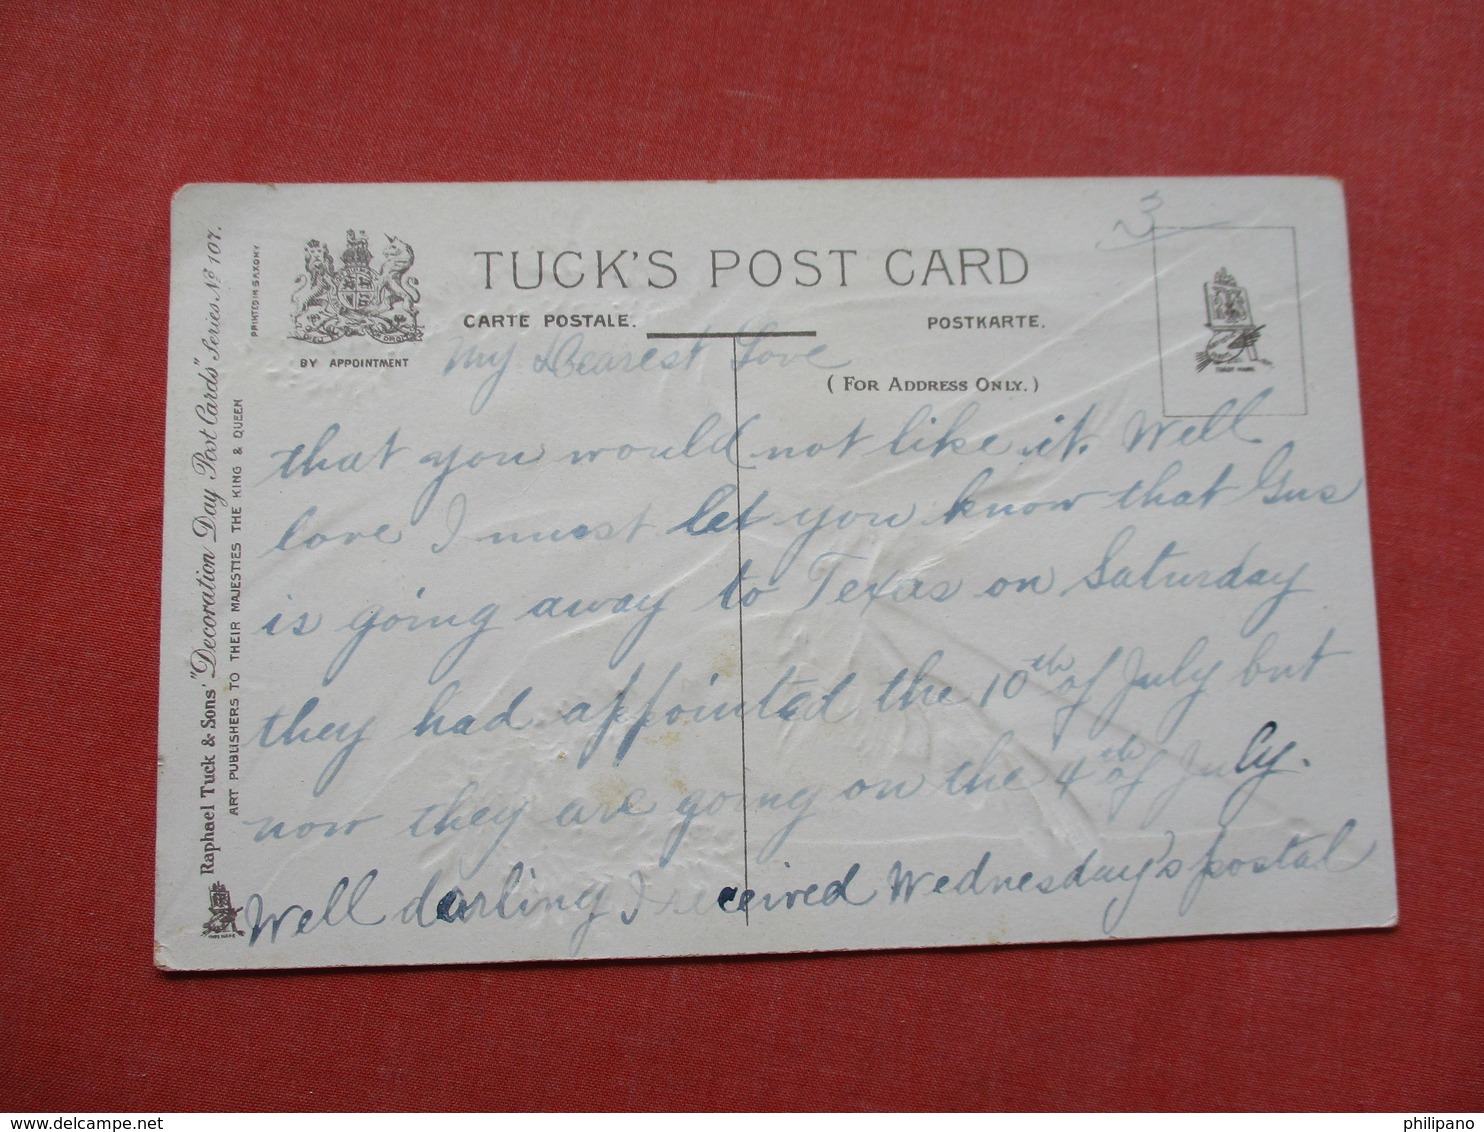 TUCK'S POST CARD
CARTE POSTALE.
POSTKARTE.
BY APPOINTMENT
(FOR ADDRESS ONLY.)
TRADE MARK.
3
Raphael Tuck & Sons' "Decoration Day Post Cards" Series No 107.
ART PUBLISHERS TO THEIR MAJESTIES THE KING & QUEEN
PRINTED IN SAXONY
My Dearest Love
that you would not like it. Well
love I must let you know that Gus
is going away to Texas on Saturday
they had appointed the 10th of July but
now they are going on the 4th of July.
Well darling I received Wednesday's postal
philipano